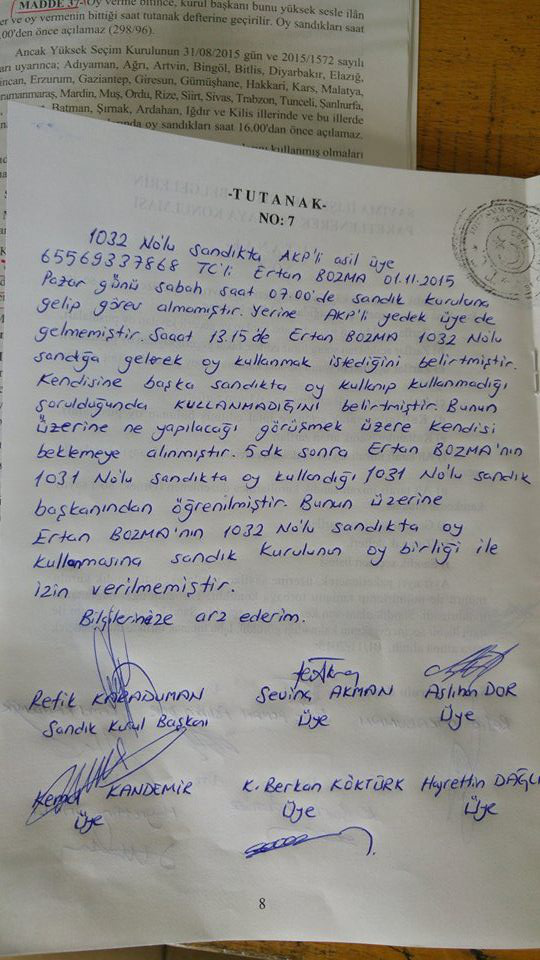 MADDE 37- Oy verme bitince, kurul başkanı bunu yüksek sesle ilân
er ve oy vermenin bittiği saat tutanak defterine geçirilir. Oy sandıkları saat
.00'den önce açılamaz (298/96).
Ancak Yüksek Seçim Kurulunun 31/08/2015 gün ve 2015/1572 sayılı
arı uyarınca; Adıyaman, Ağrı, Artvin, Bingöl, Bitlis, Diyarbakır, Elazığ,
incan, Erzurum, Gaziantep, Giresun, Gümüşhane, Hakkari, Kars, Malatya,
ramanmaraş, Mardin, Muş, Ordu, Rize, Siirt, Sivas, Trabzon, Tunceli, Şanlıurfa,
Batman, Şırnak, Ardahan, Iğdır ve Kilis illerinde ve bu illerde
oy sandıkları saat 16.00'dan önce açılamaz.
kullanmış olmaları
-TUTANAK-
NO: 7
1032 No'lu sandıkta AKP'li asil üye
65569337868 TC'li Ertan BOZMA 01.11.2015
Pazar günü sabah saat 07.00'de sandık kuruluna
gelip görev almamıştır. Yerine AKP'li yedek üye de
gelmemiştir. Saaat 13.15'de Ertan BOZMA 1032 No'lu
sandığa gelerek oy kullanmak istediğini belirtmiştir.
Kendisine başka sandıkta oy kullanıp kullanmadığı
sorulduğunda KULLANMADIĞINI belirtmiştir. Bunun
üzerine ne yapılacağı görüşmek üzere kendisi
beklemeye alınmıştır. 5 dk sonra Ertan BOZMA'nın
1031 No'lu sandıkta oy kullandığı 1031 No'lu sandık
başkanından öğrenilmiştir. Bunun üzerine
Ertan BOZMA'nın 1032 No'lu sandıkta oy
kullanmasına sandık Kurulunun oy birliği ile
izin verilmemiştir.
Bilgilerinize arz ederim.
Refik KARADUMAN Sevinç AKMAN Aslıhan DOR
Sandık Kurul Başkanı Üye Üye
Kemal KANDEMİR K. Berkan KÖKTÜRK Hayrettin DAĞLI
Üye Üye Üye
8